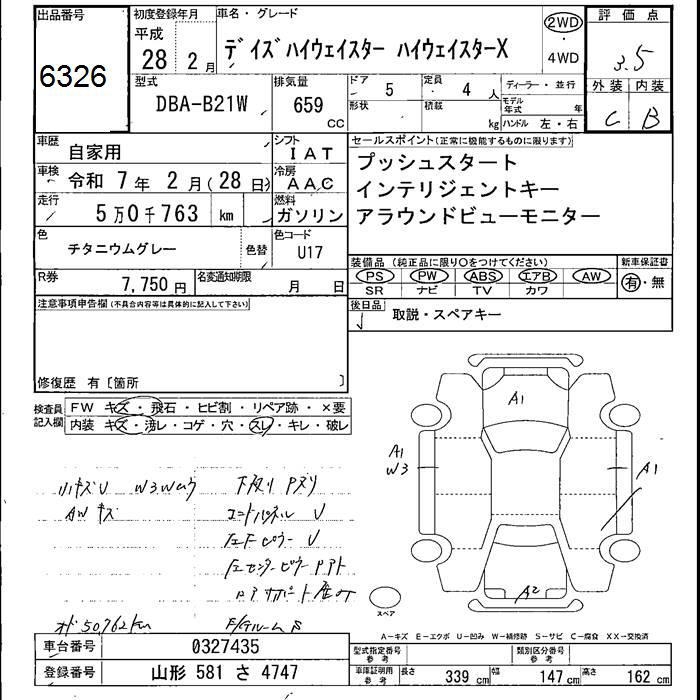 出品番号
6326
初度登録年月
平成
28 2 月
車名・グレード
デイズハイウェイスター ハイウェイスターX
2WD
・
4WD
評価点
3.5
外装 内装
C B
型式
DBA-B21W
排気量
659
CC
ドア 5
形状
定員 4 人
積載 kg
ディーラー・並行
モデル年式 年
ハンドル 左・右
車歴 自家用
シフト
IAT
車検 令和 7 年 2 月(28 日)
冷房
AAC
走行 5 万 0 千 763 km
燃料
ガソリン
色 チタニウムグレー 色替
色コード
U17
R券 7,750 円
名変通知期限 月 日
セールスポイント(正常に機能するものに限ります)
プッシュスタート
インテリジェントキー
アラウンドビューモニター
装備品(純正品に限り○をつけてください)
PS PW ABS エアB AW
SR ナビ TV カワ
新車保証書
有・無
後日品
取説・スペアキー
注意事項申告欄(不具合内容等は具体的に記入して下さい)
修復歴 有〔箇所 〕
検査員
記入欄
FW キズ・飛石・ヒビ割・リペア跡・×要
内装 キズ・汚レ・コゲ・穴・スレ・キレ・破レ
A1
A1
W3
A1
A2
スペア
小キズU
AWキズ
U
オド50,762km
A-キズ E-エクボ U-凹み W-補修跡 S-サビ C-腐食 XX-交換済
車台番号 0327435
登録番号 山形 581 さ 4747
型式指定番号
参考
類別区分番号
参考
車庫証明用
参考
長さ 339 cm 幅 147 cm 高さ 162 cm